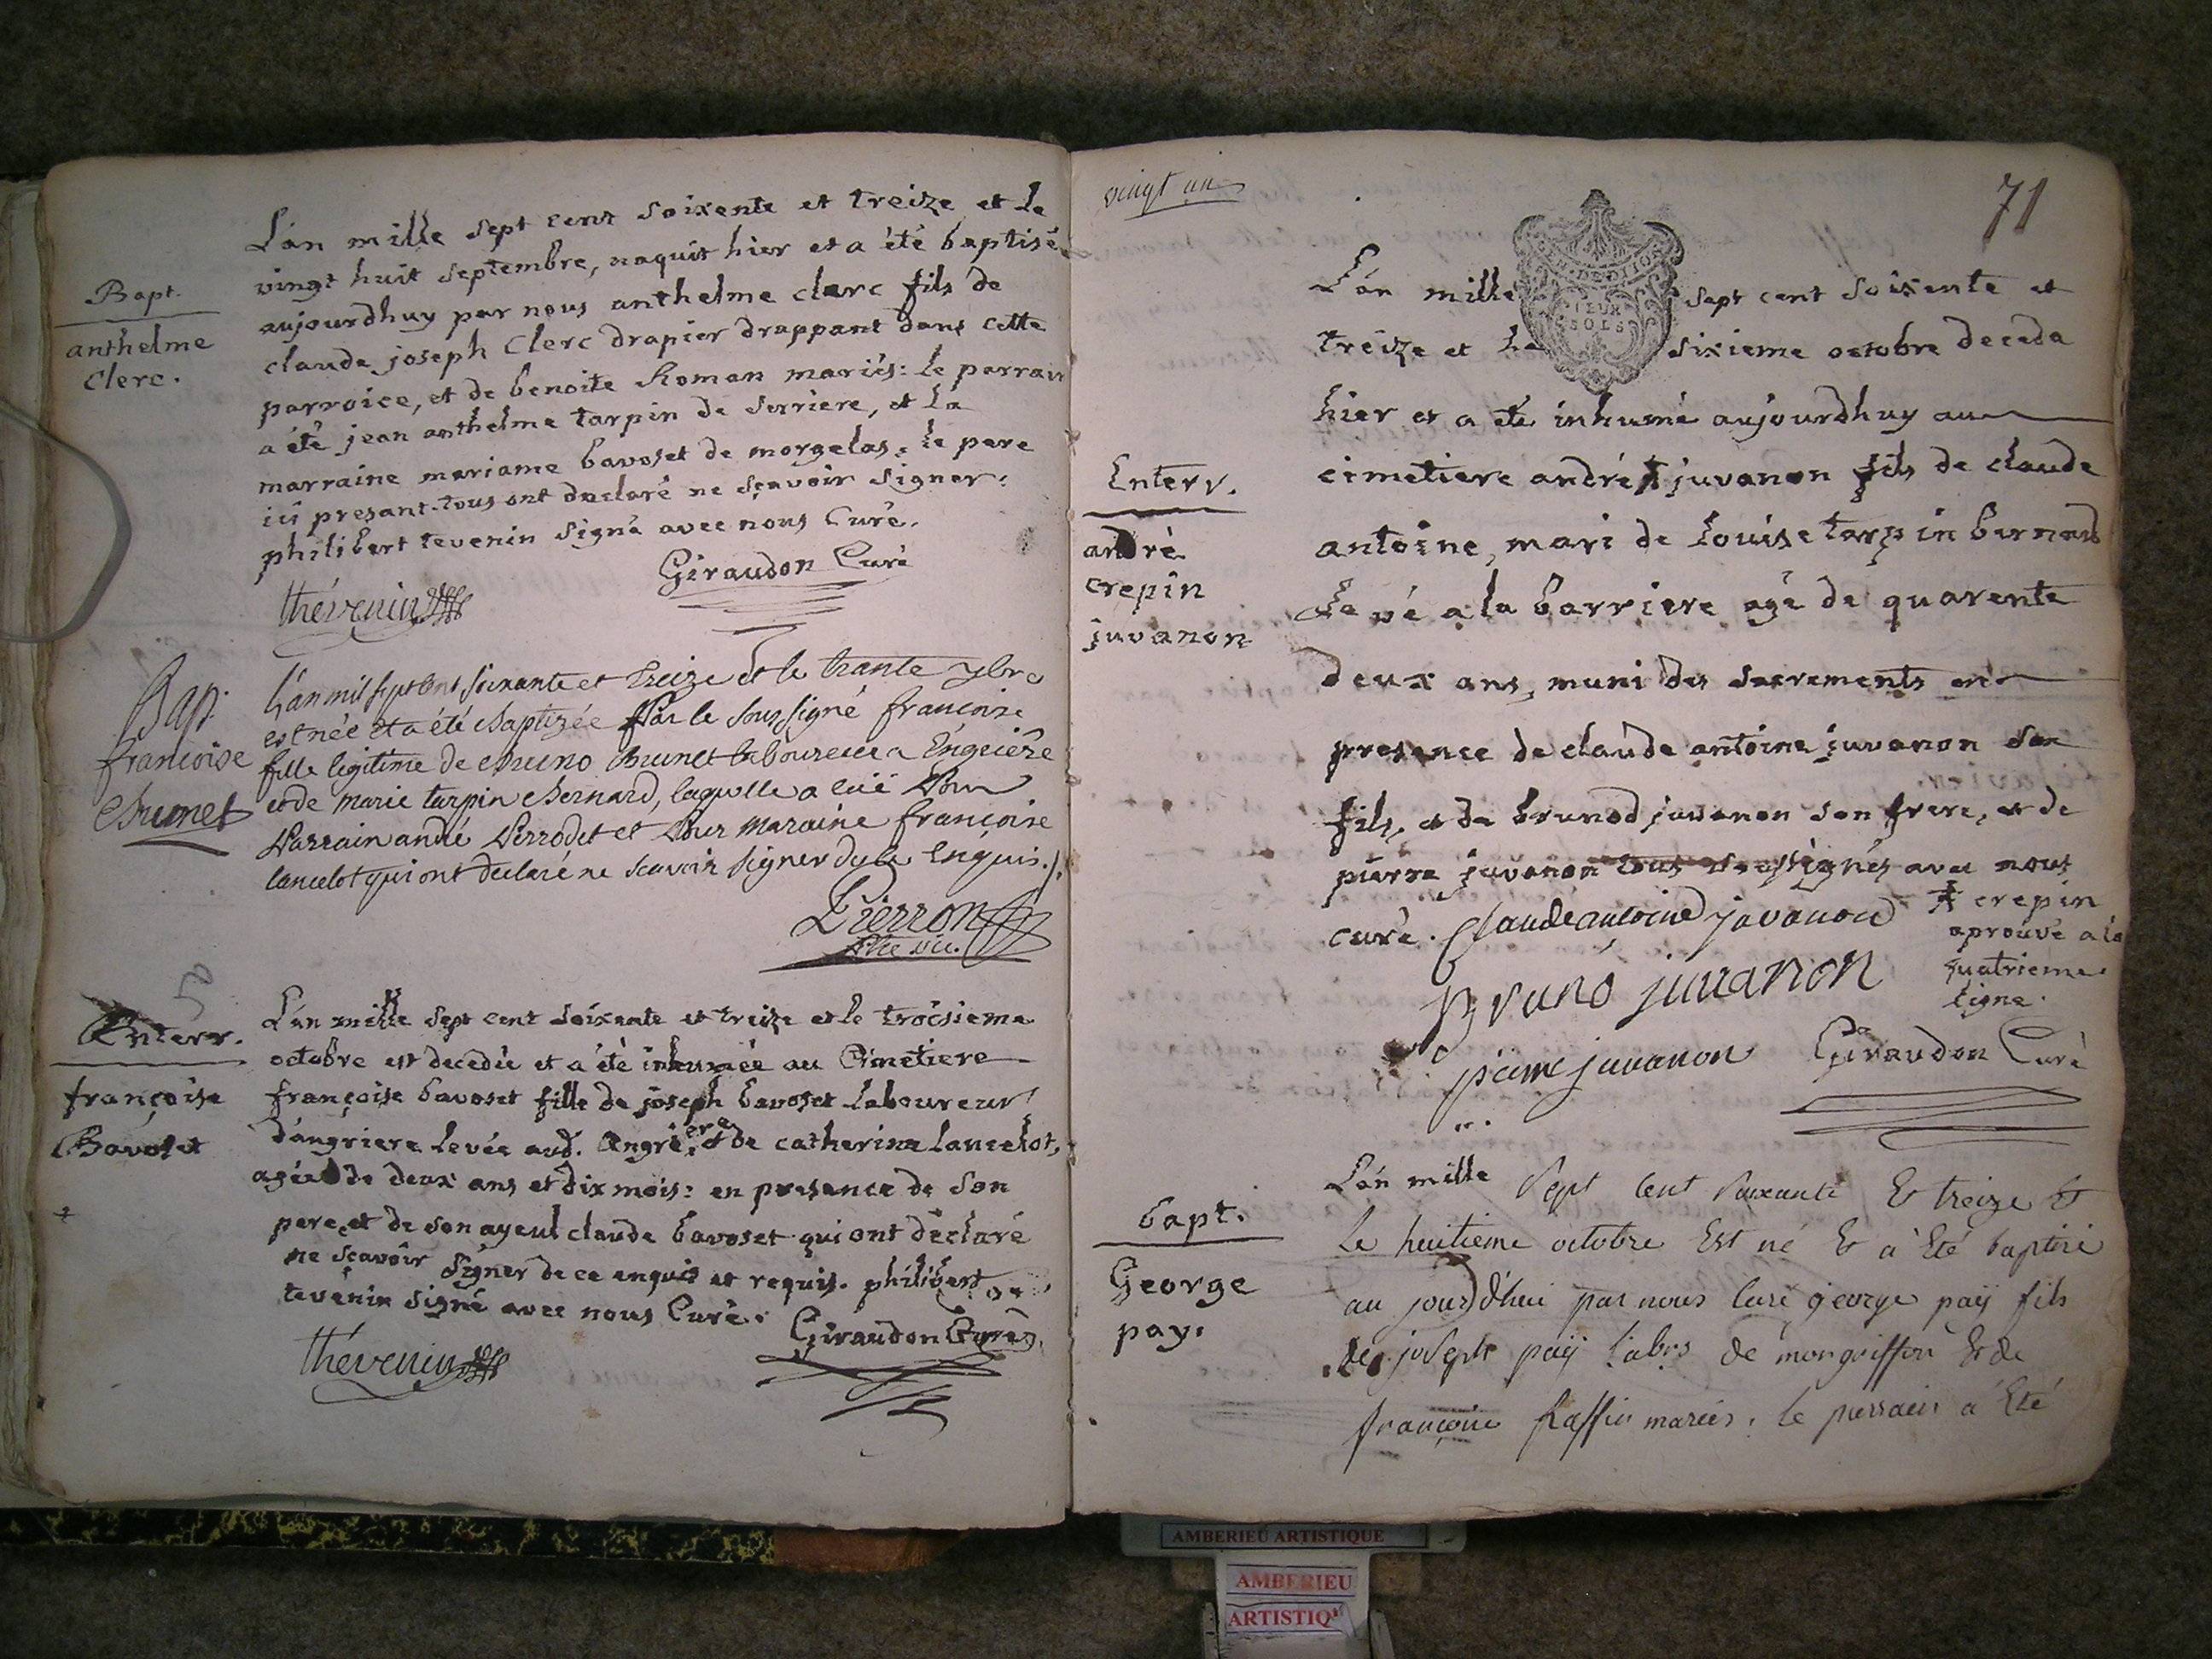 Bapt.
anthelme
Clerc.
L'an mille sept cent soixente et treize et le
vingt huit septembre, naquit hier et a été baptisé
aujourdhuy par nous anthelme clerc fils de
claude joseph Clerc drapier drappant dans cette
parroice, et de benoite Roman mariés: le parrain
a été jean anthelme tarpin de serriere, et la
marraine mariame bavoset de morgelas. le pere
ici presant. tous ont declaré ne sçavoir signer:
philibert tevenin signé avec nous Curé.
Giraudon Curé
thévenin
Bap.
francoise
Brunet
L'an mil sept cent soixante et treize et le trante 7bre
est née et a été Baptizée Par le soussigné francoise
fille legitime de Bruno Brunet laboureur a Engriére
et de marie tarpin Bernard, laquelle a eüe Pour
Parrain andré Perrodet et Pour maraine françoise
lancelot qui ont declaré ne scavoir signer de ce enquis./.
Pierron
Ptre vic.
Enterr.
françoise
Bavoset
L'an mille sept cent soixente et treize et le troisieme
octobre est decedée et a été inhumée au Cimetiere
françoise bavoset fille de joseph bavoset laboureur
d'angriere levée aud. Angriere, et de catherine lancelot,
agée de deux ans et dix mois: en presence de son
pere, et de son ayeul claude bavoset qui ont déclaré
ne sçavoir signer de ce enquis et requis. philibert
tevenin signé avec nous Curé.
Giraudon Curé
thévenin
vingt un
71
GEN. DE DIJON
DEUX
SOLS
Enterr.
andré
crepin
juvanon
L'an mille sept cent soixente et
treize et le sixieme octobre deceda
hier et a été inhumé aujourdhuy au
cimetiere andré juvanon fils de claude
antoine, mari de Louise tarpin bernard
Levé a la barriere agé de quarente
deux ans, muni des sacrements en
presence de claude antoine juvanon son
fils, et de brunod juvanon son frere, et de
pierre juvanon tous soussignés avec nous
curé. Claude antoine javanon
crepin
aprouvé a la
quatrieme
ligne.
Bruno juvanon
pierre juvanon
Giraudon Curé
bapt.
George
pay.
L'an mille sept cent soixante & treize &
le huitieme octobre Est né & a Eté baptisé
au jourd'hui par nous curé george paÿ fils
de joseph paÿ labrs de mongriffon & de
françoise Raffin mariés. le parrain a Eté
AMBERIEU ARTISTIQUE
AMBERIEU
ARTISTIQ